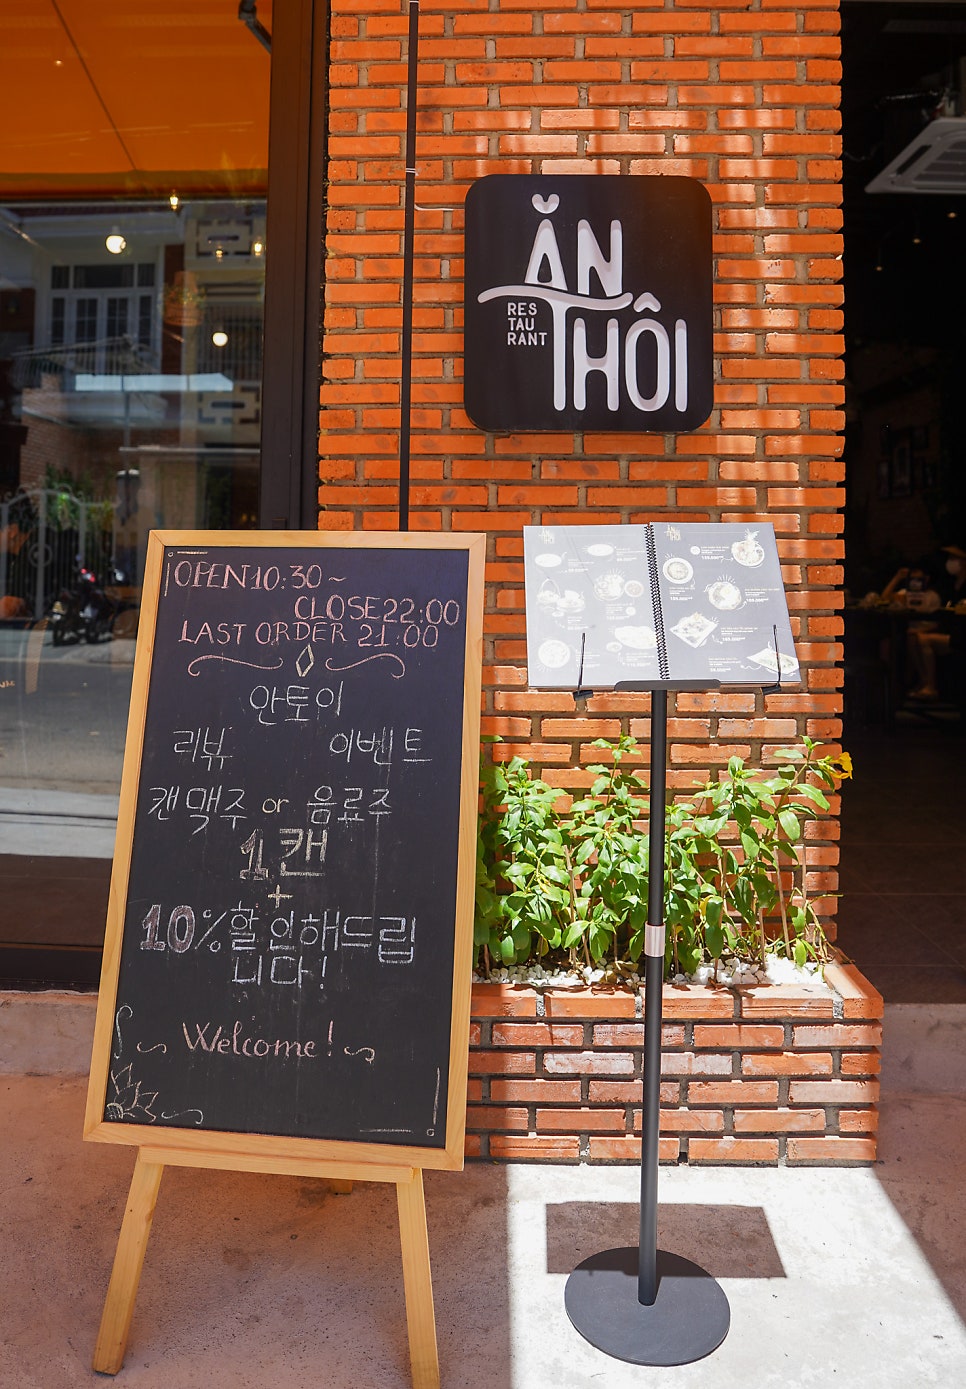 ĂN
THÔI
RES
TAU
RANT
OPEN 10:30 ~
CLOSE 22:00
LAST ORDER 21:00
안토이
리뷰 이벤트
캔맥주 or 음료주
1캔
+
10% 할인해드립
니다!
Welcome!
ĂN
THÔI